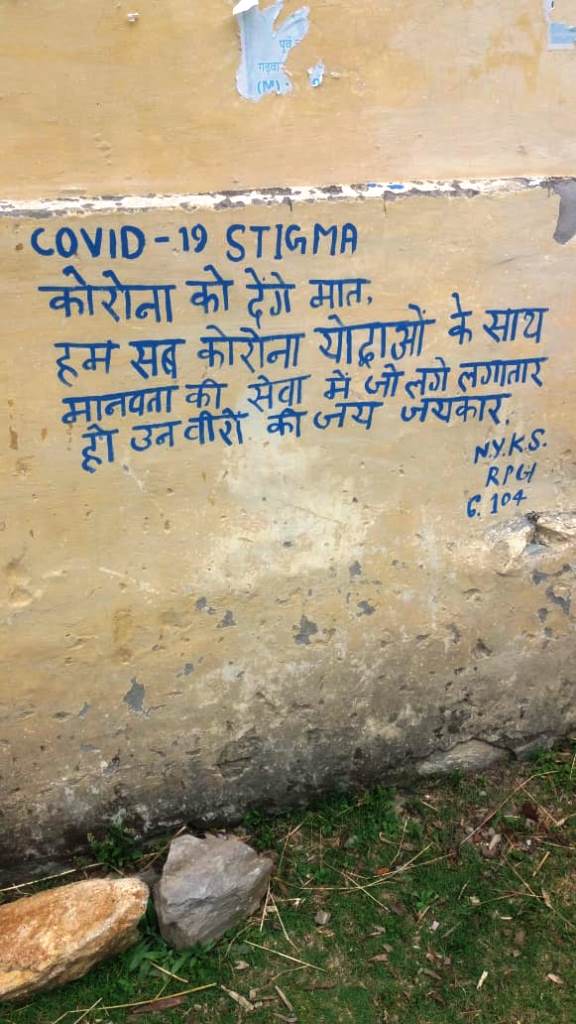 पूर्व
गढ़वा
(M)
COVID-19 STIGMA
कोरोना को देंगे मात,
हम सब कोरोना योद्धाओं के साथ
मानवता की सेवा में जो लगे लगातार
हो उन वीरों की जय जयकार.
N.Y.K.S.
RPG
G. 104